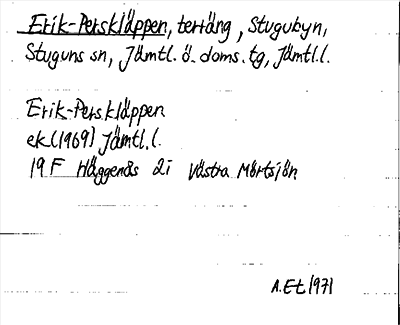 Erik-Perskläppen, terräng, Stugubyn,
Stuguns sn, Jämtl. ö. doms. tg, Jämtl.l.
Erik-Perskläppen
ek (1969) Jämtl.l.
19 F Häggenås 2i Västra Mörtsjön
A.Et 1971